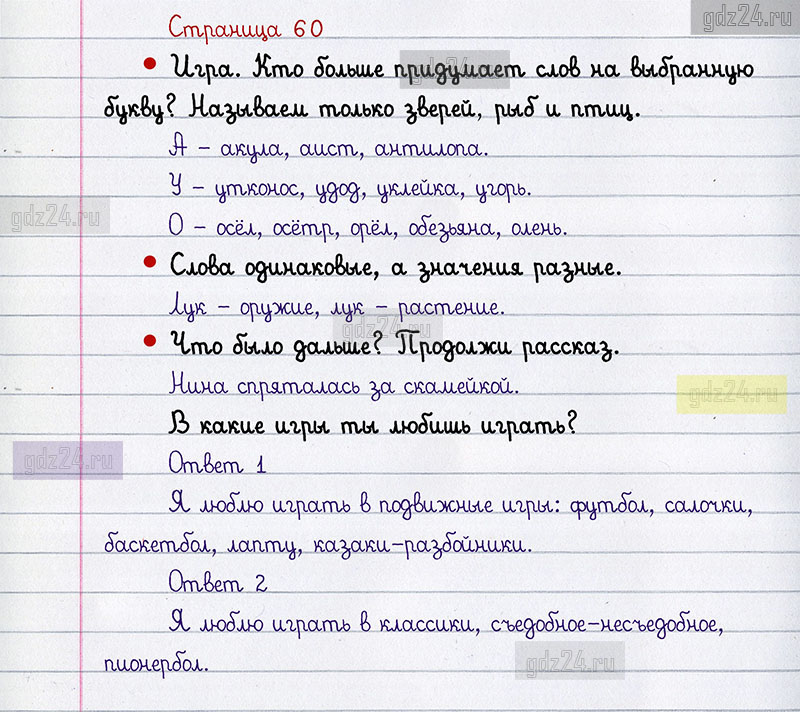 gdz24.ru
Страница 60
• Игра. Кто больше придумает слов на выбранную
gdz24.ru
букву? Называем только зверей, рыб и птиц.
А – акула, аист, антилопа.
У – утконос, удод, уклейка, угорь.
gdz24.ru
О – осёл, осётр, орёл, обезьяна, олень.
• Слова одинаковые, а значения разные.
Лук – оружие, лук – растение.
gdz24.ru
• Что было дальше? Продолжи рассказ.
Нина спряталась за скамейкой.
gdz24.ru
В какие игры ты любишь играть?
gdz24.ru
Ответ 1
Я люблю играть в подвижные игры: футбол, салочки,
баскетбол, лапту, казаки-разбойники.
Ответ 2
Я люблю играть в классики, съедобное-несъедобное,
пионербол.
gdz24.ru